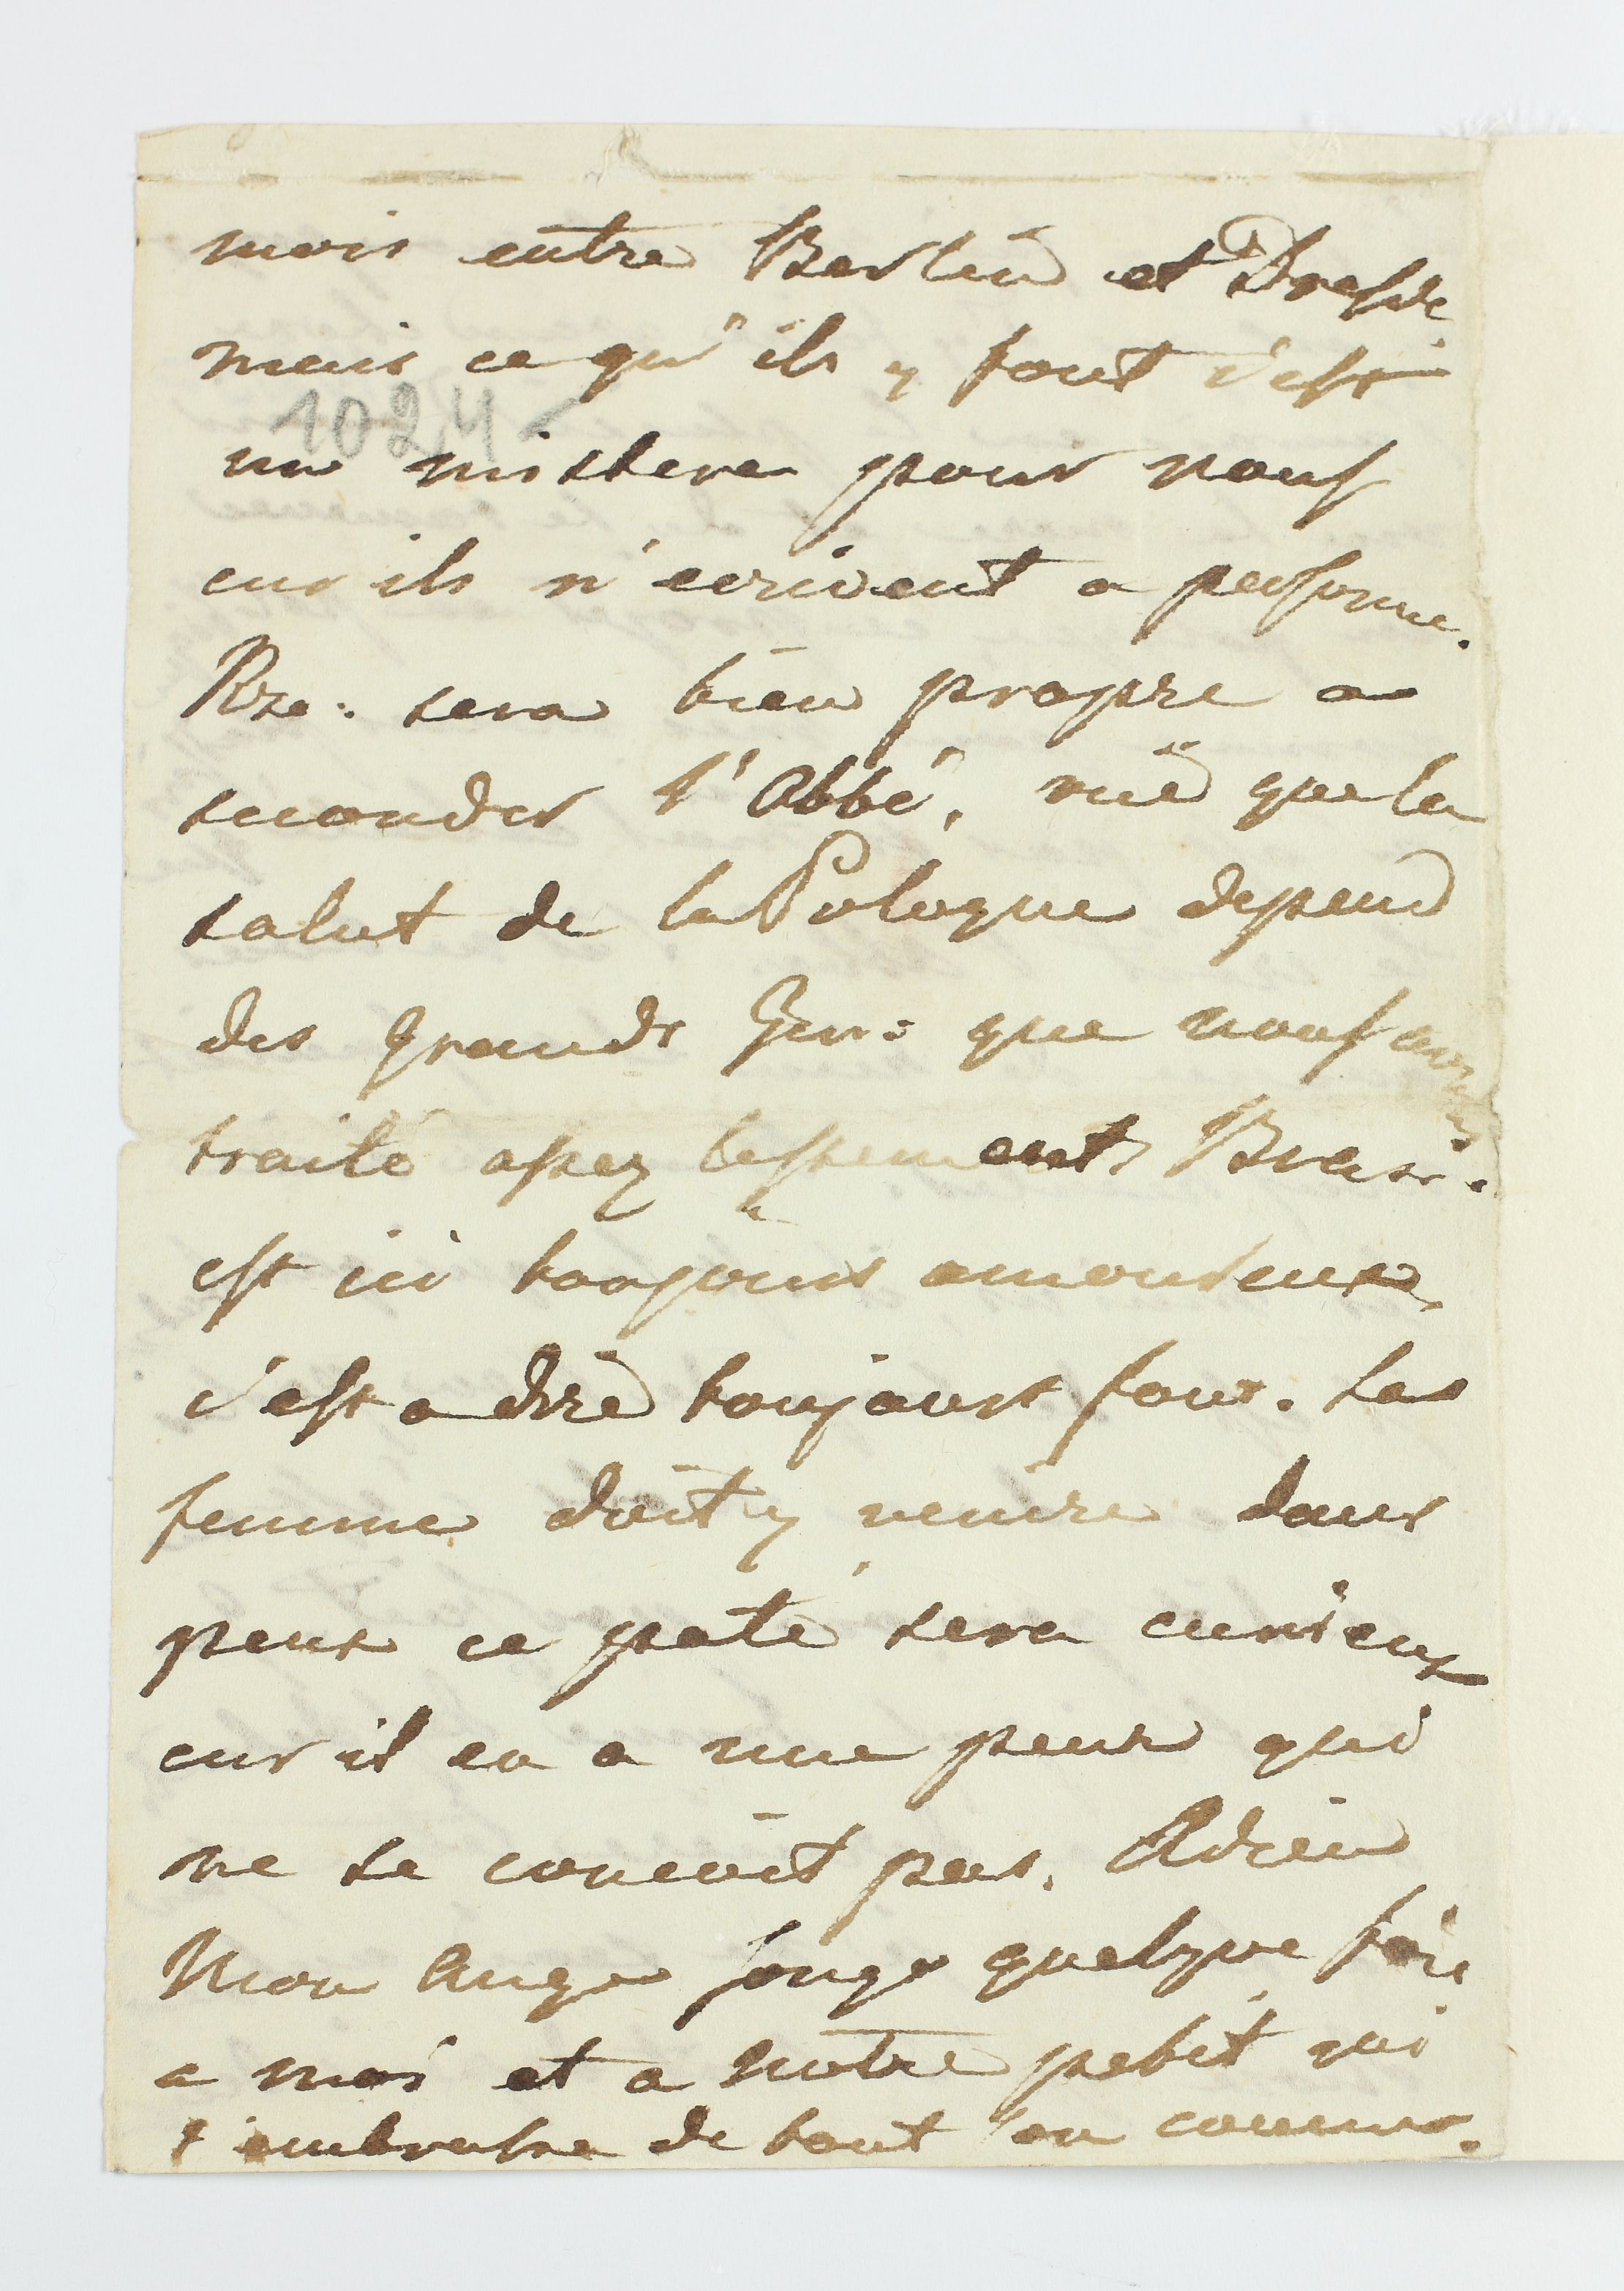 mois entre Berlin et Dresde
mais ce qu'ils y font c'est
1024
un mistere pour nous
car ils n'ecrivent a personne.
Rze: sera bien propre a
seconder l'Abbé, vuë que le
salut de la Pologne depend
des grands Gen: que nous avons
traité assez lestement Bran:
est ici toujours amoureux,
c'est a dire toujours fou. Sa
femme doit y venire dans
peux ce paté sera curieux
car il en a une peur qui
ne se concoit pas. Adieu
Mon Ange songe quelque fois
a moi et a notre petit qui
t'embrasse de tout son coeur.